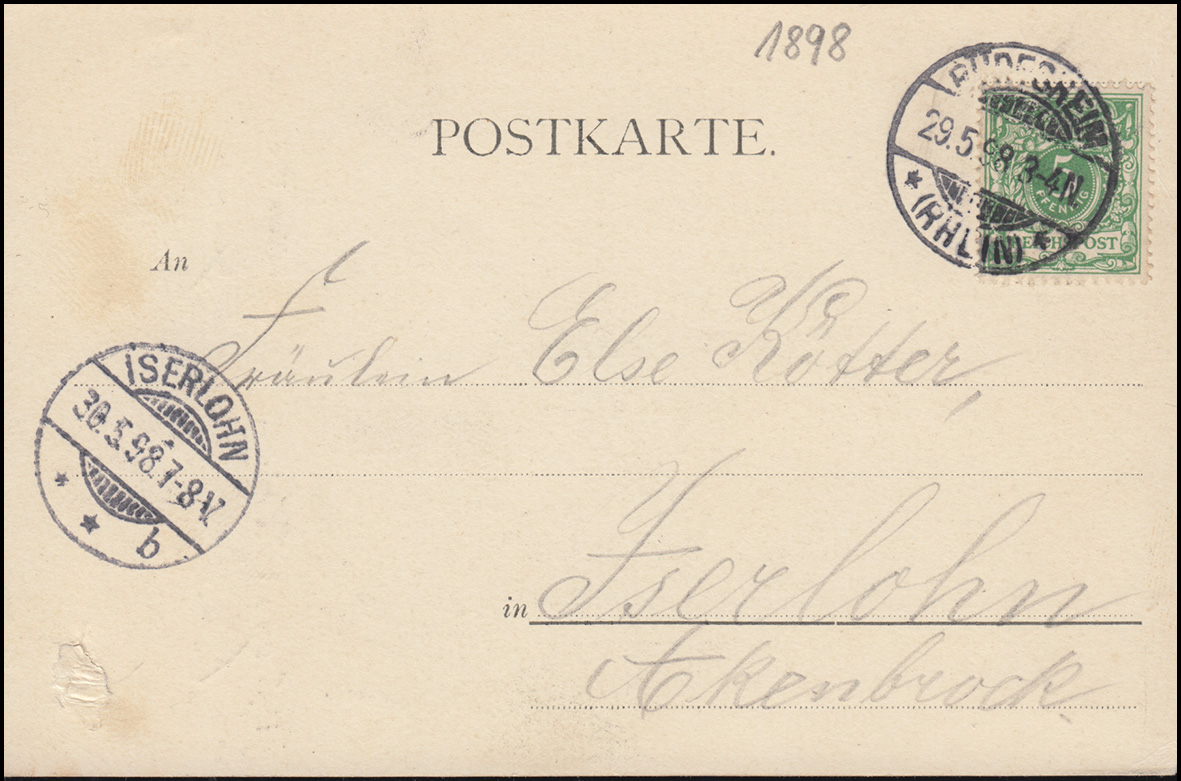 1898
POSTKARTE.
RÜDESHEIM
29.5.98 3-4N.
* (RHEIN) *
5
PFENNIG
REICHSPOST
An
Fräulein Else Kötter,
ISERLOHN
30.5.98.7-8V.
* * b
in Iserlohn
Akenbrock